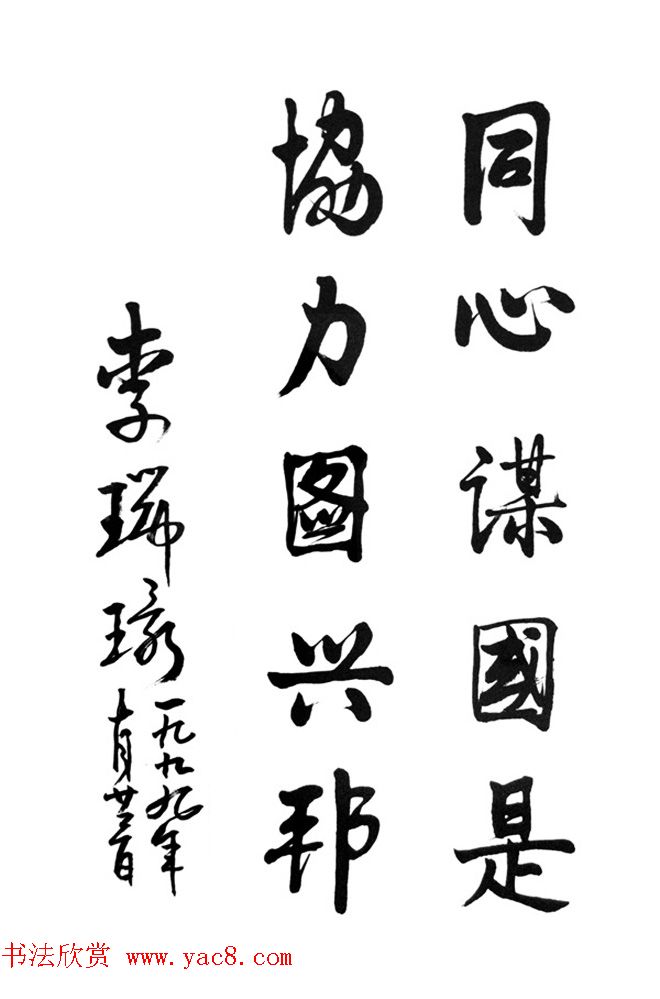 同心謀國是
協力圖兴邦
李瑞環
一九九九年
十月廿日
书法欣赏 www.yac8.com